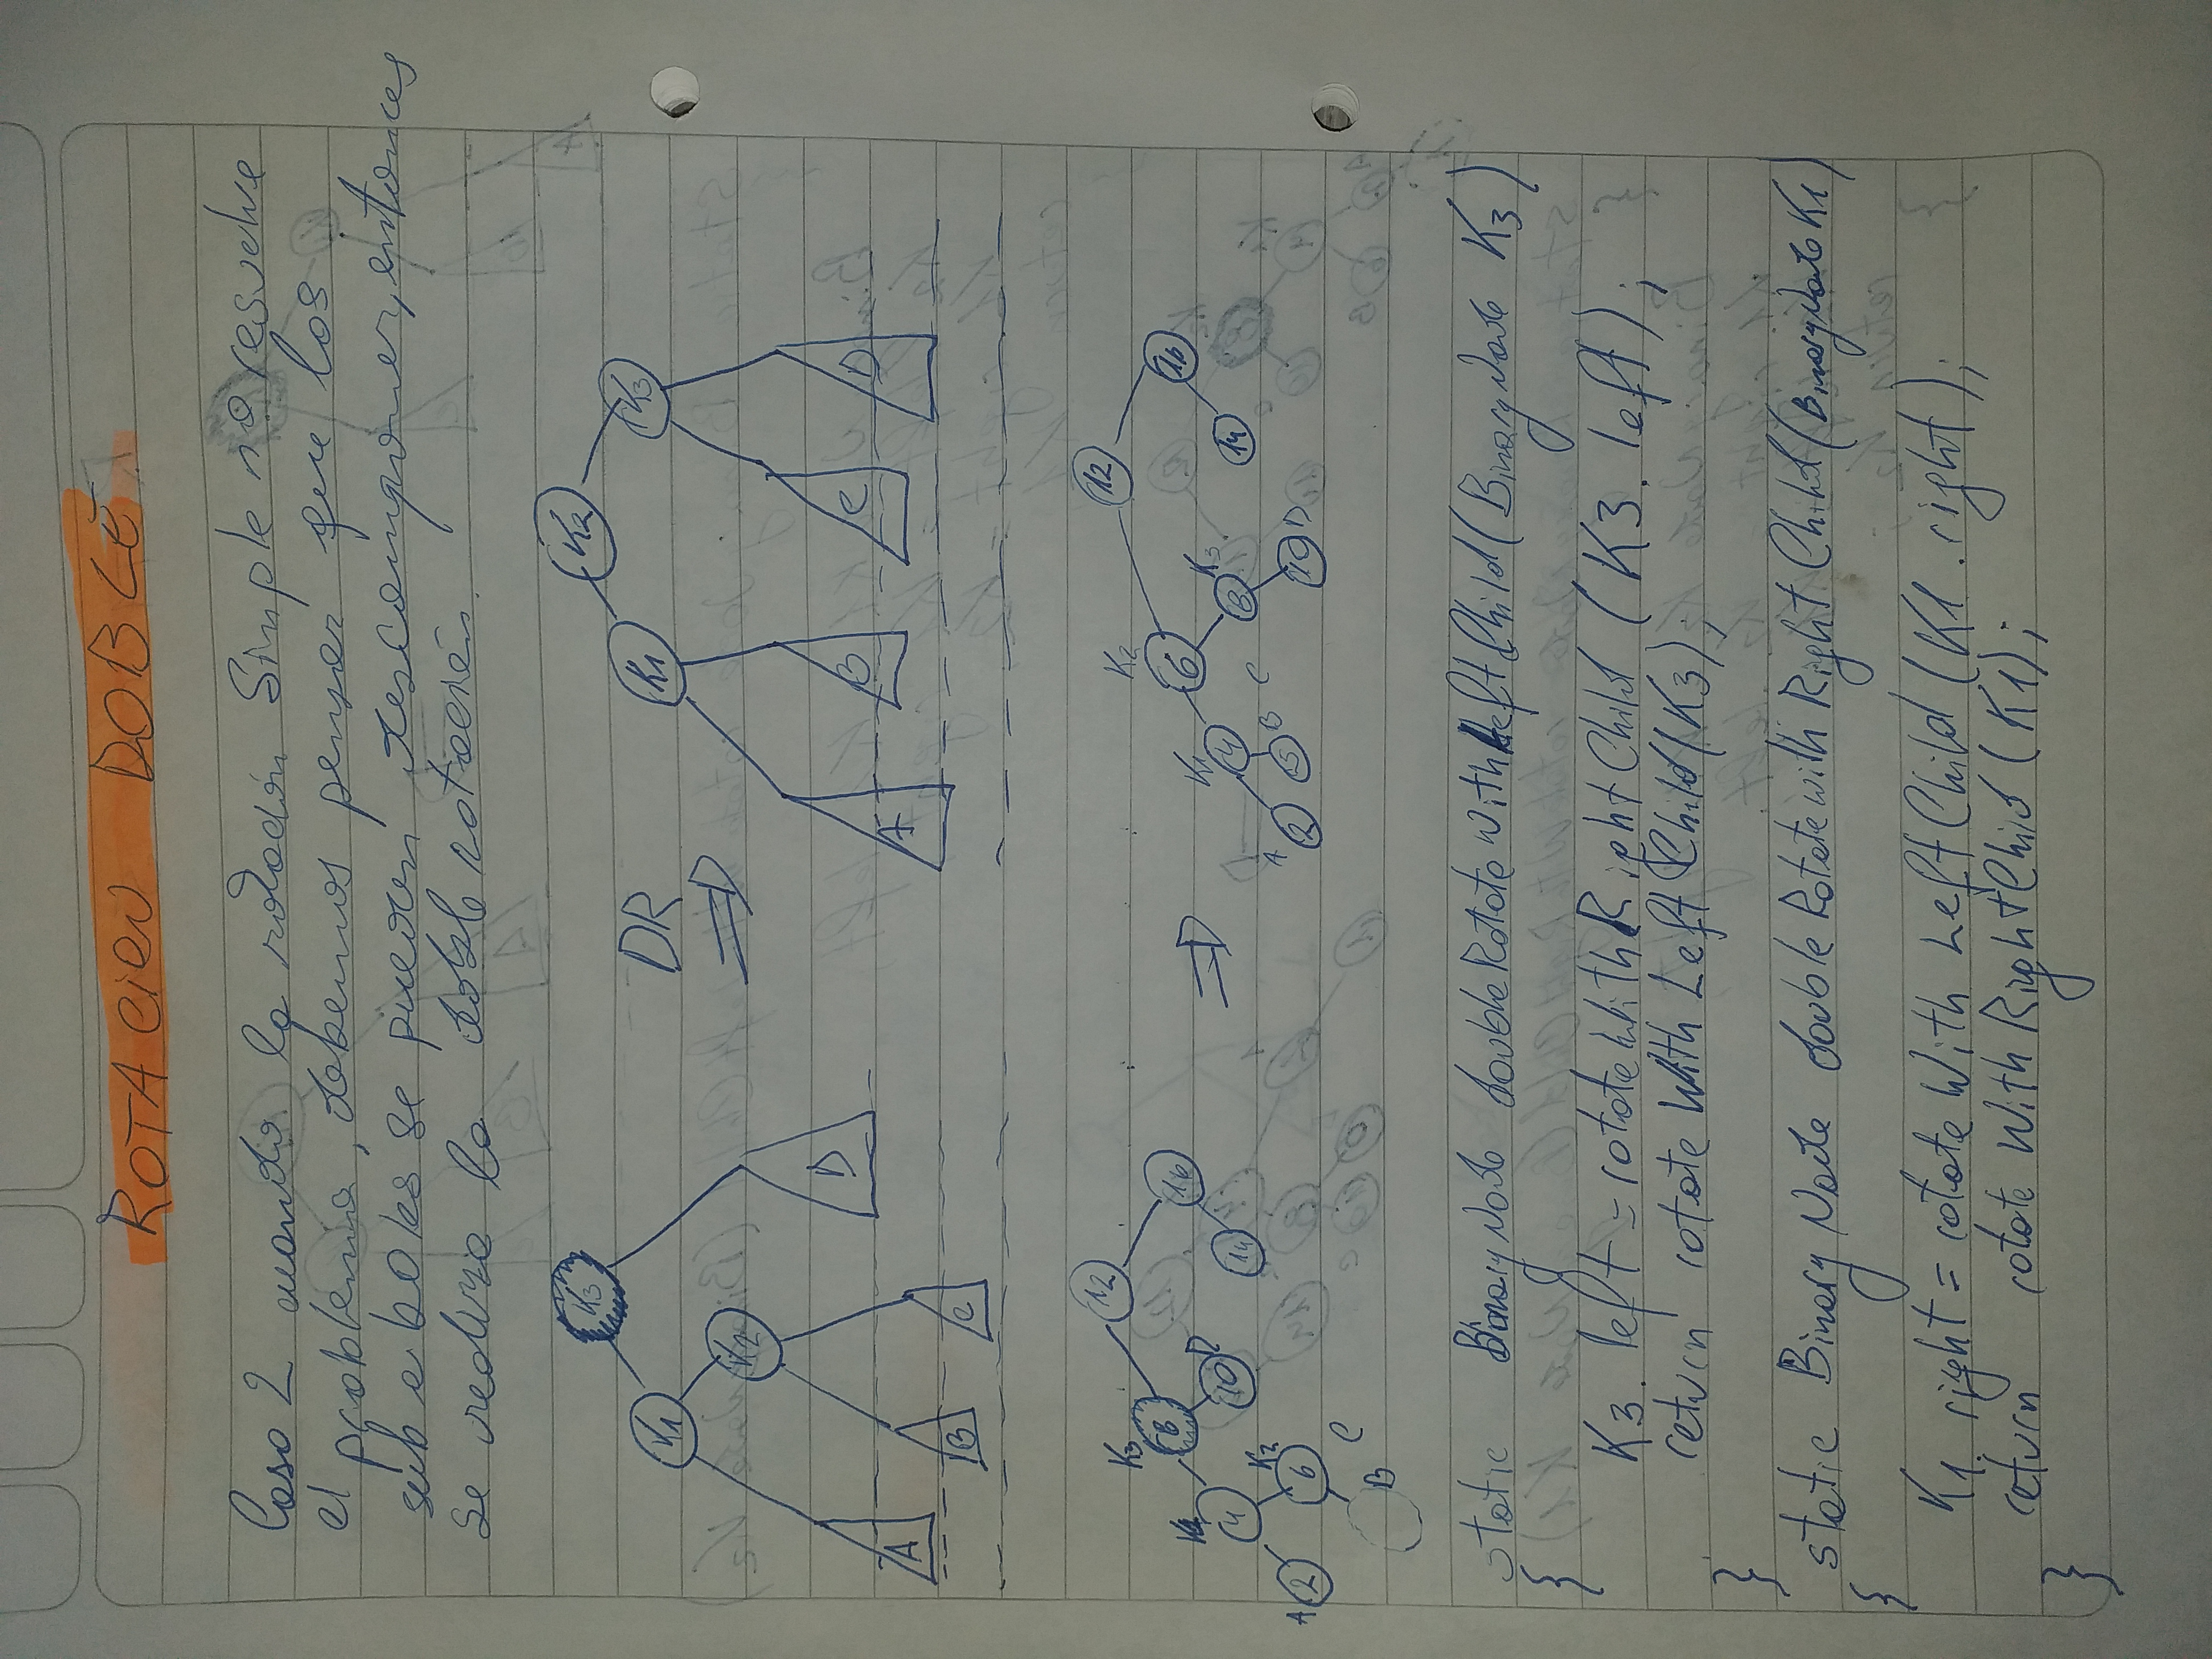 ROTACION DOBLE
Caso 2 cuando la rotación Simple no resuelve
el problema, debemos pensar que los
sub arboles se pueden descomponer, entonces
se realiza la doble rotación.
K3 K2
K1 DR K1 K3
K2
D B C D
A A
B C
12 12
K3 K2
8 16 6 16
K1 D K1 K3
4 10 14 4 8 14
K2 A B C
A 2 6 2 5 10 D
C
B
static BinaryNode doubleRotateWithLeftChild(BinaryNode K3)
{
K3. left = rotateWithRightChild (K3. left);
return rotate With Left Child(K3);
}
static Binary Node double Rotate with Right Child(BinaryNode K1)
{
K1. right = rotate With Left Child (K1. right);
return rotate With RightChild (K1);
}